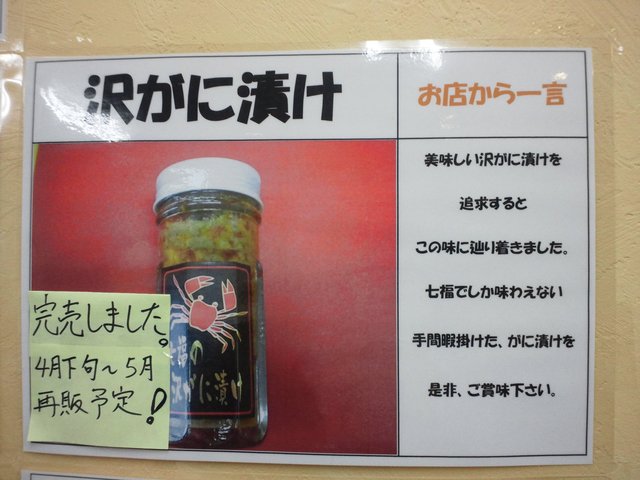 沢がに漬け
お店から一言
美味しい沢がに漬けを
追求すると
この味に辿り着きました。
七福でしか味わえない
手間暇掛けた、がに漬けを
是非、ご賞味下さい。
福の
沢がに漬け
完売しました。
4月下旬～5月
再販予定!